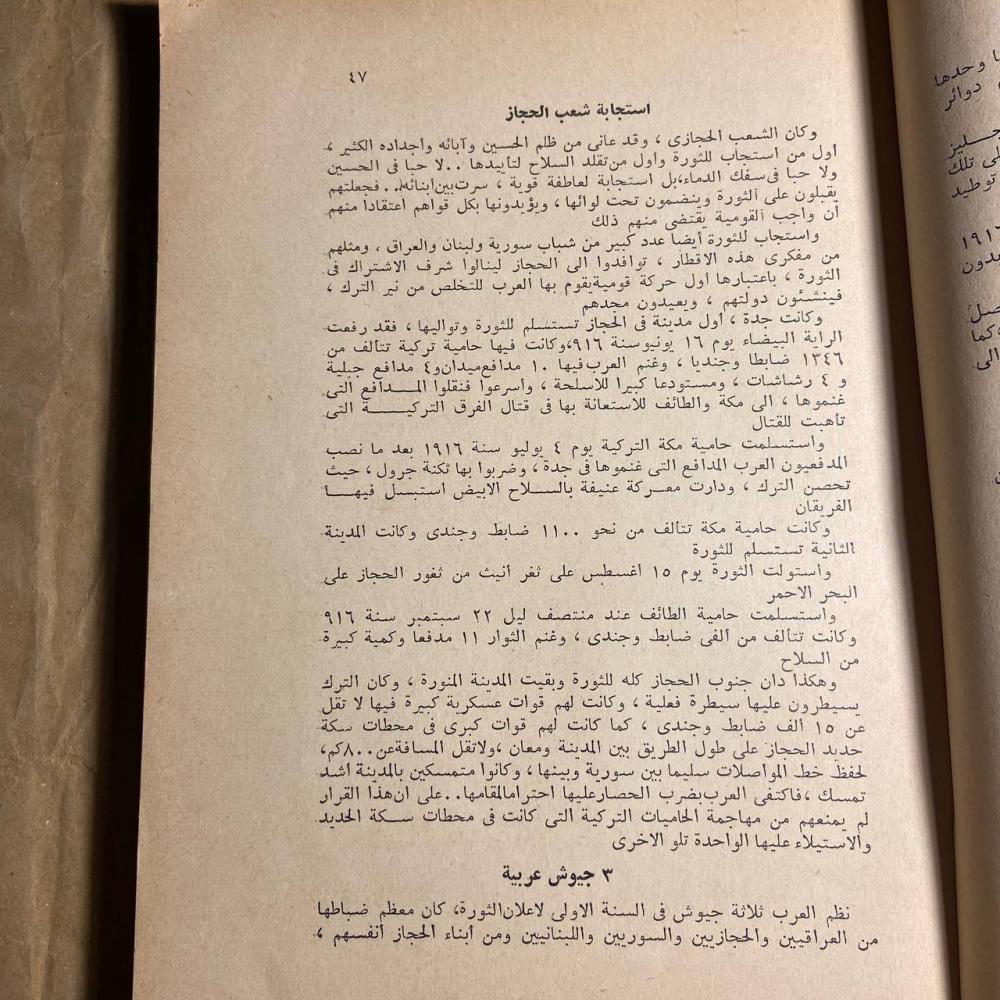 ٤٧
استجابة شعب الحجاز
وكان الشعب الحجازى ، وقد عانى من ظلم الحسين وآبائه وأجداده الكثير ،
أول من استجاب للثورة واول من تقلد السلاح لتأييدها ٠٠ لا حبا فى الحسين
ولا حبا فى سفك الدماء ، بل استجابة لعاطفة قوية ، سرت بين ابنائه ٠٠ فجعلتهم
يقبلون على الثورة وينضمون تحت لوائها ، ويؤيدونها بكل قواهم اعتقادا منهم
أن واجب القومية يقتضى منهم ذلك
واستجاب للثورة أيضا عدد كبير من شباب سورية ولبنان والعراق ، ومثلهم
من مفكرى هذه الاقطار ، توافدوا الى الحجاز لينالوا شرف الاشتراك فى
الثورة ، باعتبارها أول حركة قومية يقوم بها العرب للتخلص من نير الترك ،
فينشئون دولتهم ، ويعيدون مجدهم
وكانت جدة ، أول مدينة فى الحجاز تستسلم للثورة وتواليها ، فقد رفعت
الراية البيضاء يوم ١٦ يونيو سنة ٩١٦ ، وكانت فيها حامية تركية تتألف من
١٣٤٦ ضابطا وجنديا ، وغنم العرب فيها ١٠ مدافع ميدان و٤ مدافع جبلية
و ٤ رشاشات ، ومستودعا كبيرا للاسلحة ، وأسرعوا فنقلوا المـــدافع التى
غنموها ، الى مكة والطائف للاستعانة بها فى قتال الفرق التركيـــــة التى
تأهبت للقتال
واستسلمت حامية مكة التركية يوم ٤ يوليو سنة ١٩١٦ بعد ما نصب
المدفعيون العرب المدافع التى غنموها فى جدة ، وضربوا بها ثكنة جرول ، حيث
تحصن الترك ، ودارت معـركة عنيفة بالسـلاح الابيض استبسل فيهـا
الفريقان
وكانت حامية مكة تتألف من نحو ١١٠٠ ضابط وجندى وكانت المدينة
الثانية تستسلم للثورة
واستولت الثورة يوم ١٥ أغسطس على ثغر أنيث من ثغور الحجاز على
البحر الاحمر
واستسلمت حامية الطائف عند منتصف ليل ٢٢ سبتمبر سنة ٩١٦
وكانت تتألف من الفى ضابط وجندى ، وغنم الثوار ١١ مدفعا وكمية كبيرة
من السلاح
وهكذا دان جنوب الحجاز كله للثورة وبقيت المدينة المنورة ، وكان الترك
يسيطرون عليها سيطرة فعلية ، وكانت لهم قوات عسكرية كبيرة فيها لا تقل
عن ١٥ ألف ضابط وجندى ، كما كانت لهم قوات كبرى فى محطات سكة
حديد الحجاز على طول الطريق بين المدينة ومعان ، ولاتقل المسافة عن ٨٠٠كم،
لحفظ خط المواصلات سليما بين سورية وبينها ، وكانوا متمسكين بالمدينة أشد
تمسك ، فاكتفى العرب بضرب الحصار عليها احتراما لمقامها ٠٠ على ان هذا القرار
لم يمنعهم من مهاجمة الحاميات التركية التى كانت فى محطات سـكة الحديد
والاستيلاء عليها الواحدة تلو الاخرى
٣ جيوش عربية
نظم العرب ثلاثة جيوش فى السنة الاولى لاعلان الثورة، كان معظم ضباطها
من العراقيين والحجازيين والسوريين واللبنانيين ومن أبناء الحجاز أنفسهم ،
ا وحدها
دوائر
جليز
لى تلك
توطيد
١٩١٦
بعدون
صل
،كما
الى